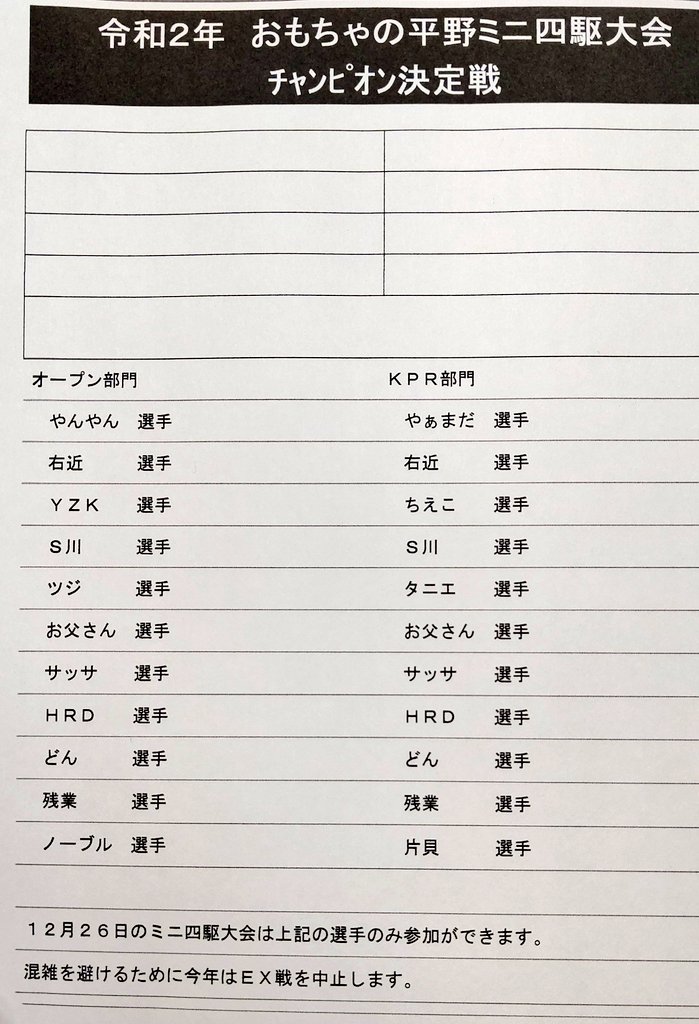 令和２年　おもちゃの平野ミニ四駆大会
ﾁｬﾝﾋﾟｵﾝ決定戦
オープン部門　ＫＰＲ部門
やんやん　選手　やぁまだ　選手
右近　選手　右近　選手
ＹＺＫ　選手　ちえこ　選手
Ｓ川　選手　Ｓ川　選手
ツジ　選手　タニエ　選手
お父さん　選手　お父さん　選手
サッサ　選手　サッサ　選手
ＨＲＤ　選手　ＨＲＤ　選手
どん　選手　どん　選手
残業　選手　残業　選手
ノーブル　選手　片貝　選手
１２月２６日のミニ四駆大会は上記の選手のみ参加ができます。
混雑を避けるために今年はＥＸ戦を中止します。